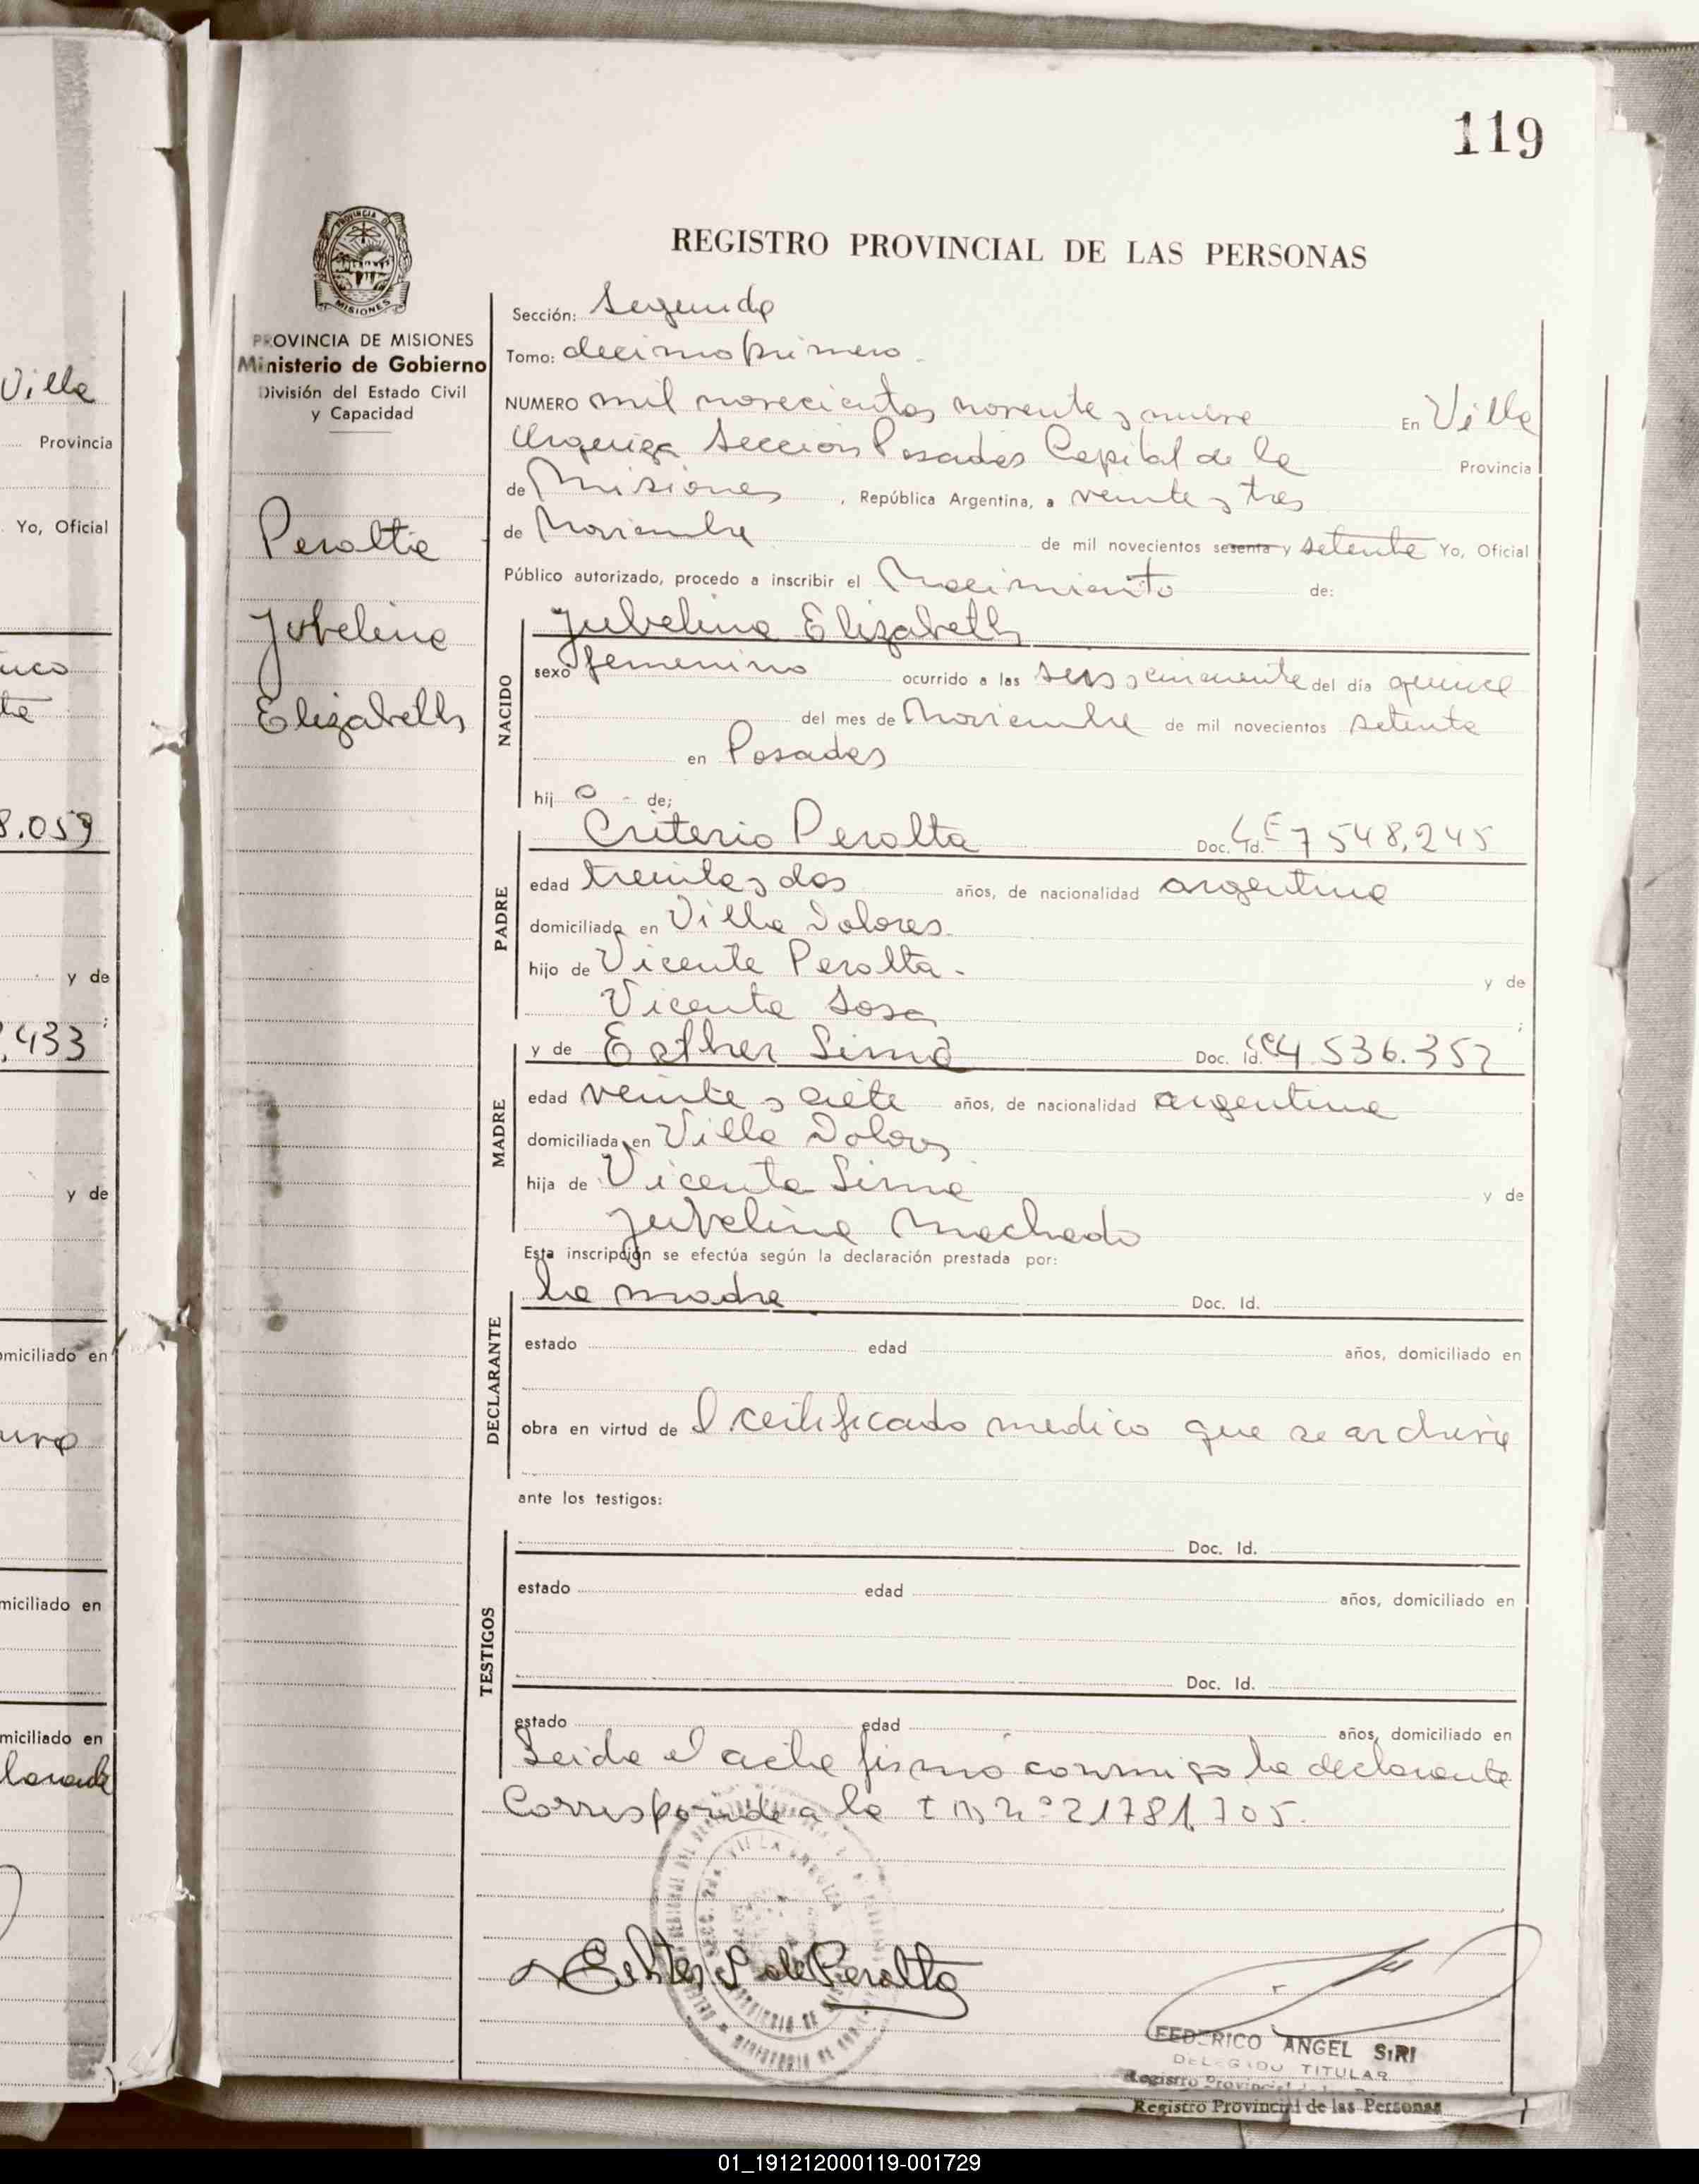 119
REGISTRO PROVINCIAL DE LAS PERSONAS
PROVINCIA DE
MISIONES
PROVINCIA DE MISIONES
Ministerio de Gobierno
División del Estado Civil
y Capacidad
Peralta
Jubelina
Elizabeth
Sección: Segunda
Tomo: decimo primero
NUMERO mil novecientos noventa y nueve En Villa
Urquiza Sección Posadas Capital de la Provincia
de Misiones, República Argentina, a veinte y tres
de Noviembre de mil novecientos sesenta y setenta Yo, Oficial
Público autorizado, procedo a inscribir el Nacimiento de:
NACIDO
Jubelina Elizabeth
sexo femenino ocurrido a las seis y cincuenta del día quince
del mes de Noviembre de mil novecientos setenta
en Posadas
hij a de;
PADRE
Criterio Peralta Doc. Id. LE 7 548,245
edad treinta y dos años, de nacionalidad argentina
domiciliado en Villa Dolores
hijo de Vicente Peralta y de
Vicenta Sosa ;
MADRE
y de Esther Doc. Id. 4 536.352
edad veinte y siete años, de nacionalidad argentina
domiciliada en Villa Dolores
hija de Vicenta y de
Jubelina Machado
Esta inscripción se efectúa según la declaración prestada por:
DECLARANTE
la madre Doc. Id.
estado edad años, domiciliado en
obra en virtud de l certificado medico que se archiva
ante los testigos:
TESTIGOS
Doc. Id.
estado edad años, domiciliado en
Doc. Id.
estado edad años, domiciliado en
Leida el acta firmó conmigo la declarante
Corresponde a la nº 21781,705.
de Peralta
FEDERICO ANGEL SIRI
DELEGADO TITULAR
Registro Provincial de las Personas
Villa
Provincia
Yo, Oficial
8.059
y de
,433 ;
y de
omiciliado en
miciliado en
miciliado en
01_191212000119-001729